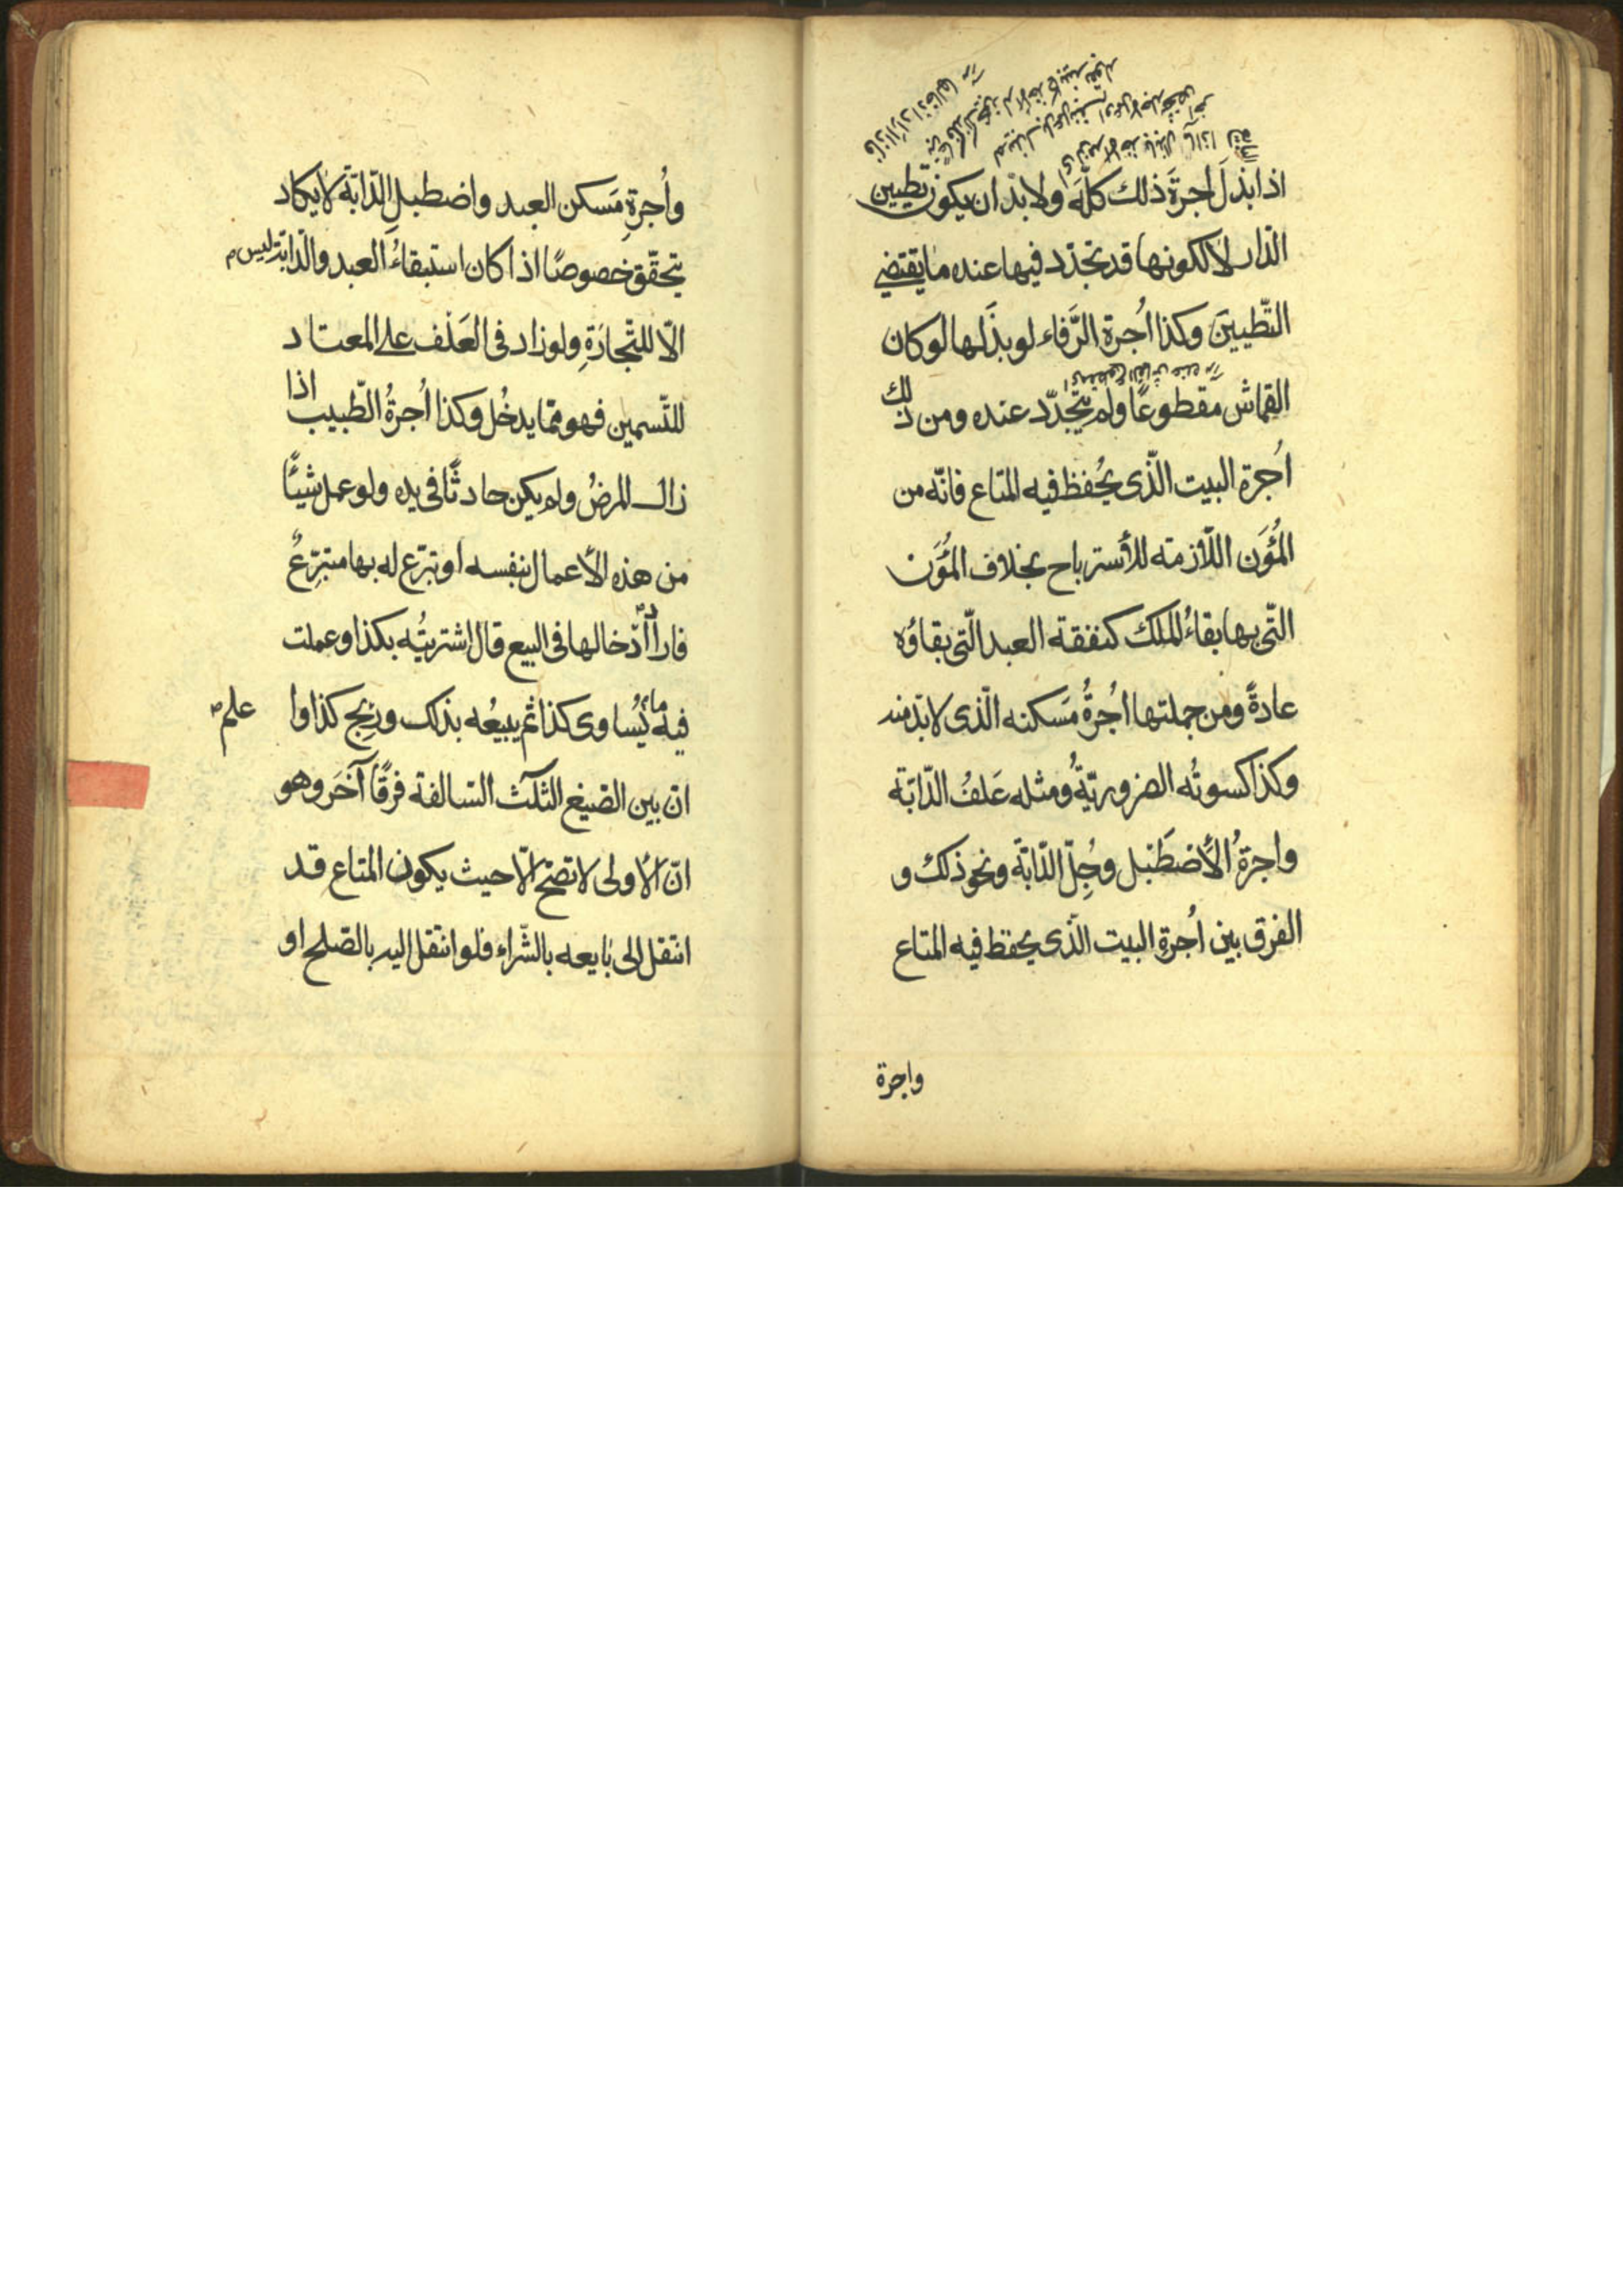 اذا بذل اجرة ذلك كلّه ولا بدّ ان يكون تطيين
الدّار لا لكونها قد تجدّد فيها عنده ما يقتضي
التّطيين وكذا اُجرة الرَّفاء لو بذَلها لو كان
القماش مقطوعًا ولم يتجدّد عنده ومن ذلك
اُجرة البيت الّذى يُحفظ فيه المتاع فانّه من
المُؤَن اللّازمة للأسترباح بخلاف المُؤَن
الّتى بها بقاءُ الملك كنفقة العبد الّتى بقاؤه
عادةً ومن جملتها اُجرةُ مَسكنه الّذى لا بدّ منه
وكذا كسوتُه الضروريّةُ ومثله عَلفُ الدّابّة
واجرةُ الأضطَبل وجُلّ الدّابّة ونحو ذلك و
الفرق بين اُجرةِ البيت الّذى يحفظ فيه المتاع
واجرة
واُجرةِ مَسكن العبد واضطبلِ الدّابّة لا يكاد
يتحقّق خصوصًا اذا كان استبقاءُ العبد والدّابّة ليس
الّا للتّجارَةِ ولو زاد فى العَلف على المعتاد
للتّسمين فهو ممّا يدخُل وكذا اُجرةُ الطّبيب اذا
زال المرضُ ولم يكن حادثًا فى يده ولو عمل شيئًا
من هذه الأعمال بنفسه او تبرّع له بها متبرّعٌ
فاراد اُدّخالها فى البيع قال اشتريتُه بكذا وعملت
فيه ما يُساوى كذا ثم يبيعُه بذلك وربح كذا وا
علم
انّ بين الصّيغ الثّلٰث السّالفة فرقًا آخَر وهو
انّ الأولى لا تصحّ الّا حيث يكون المتاع قد
انتقل الى بايعه بالشّراء فلو انتقل اليه بالصّلح او